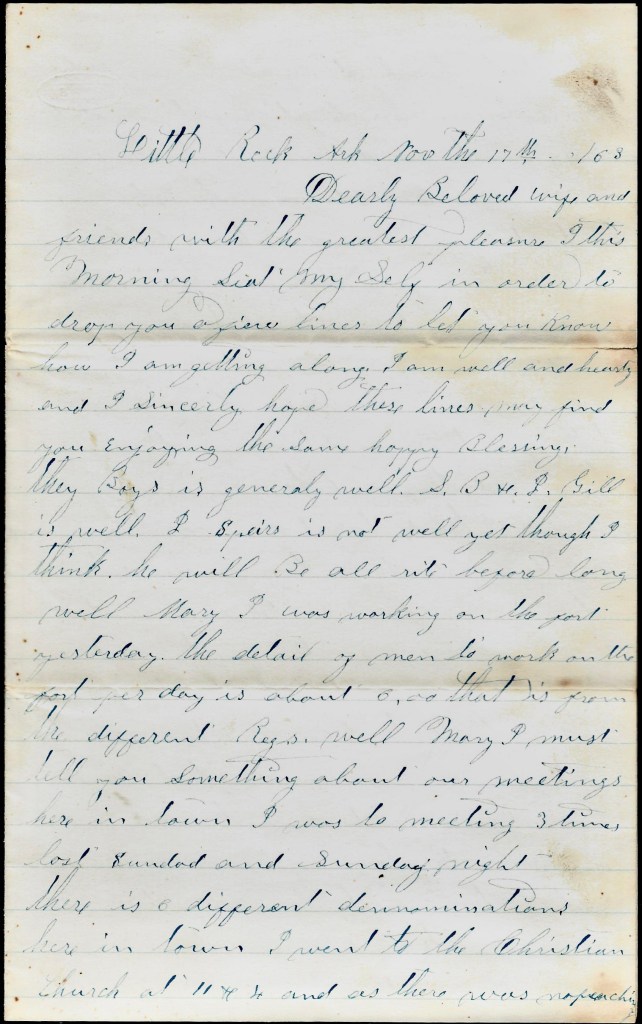 Little Rock Ark Nov the 17th /63
Dearly Beloved wife and
friends with the greatest pleasure I this
Morning Seat my Self in order to
drop you a few lines to let you Know
how I am getting along. I am well and hearty
and I Sincerly hope these lines may find
you Enjoying the Same happy Blessing.
they Boys is generaly well. S. B & J. Gill
is well. J Spairs is not well yet though I
think he will Be all rite before long
well Mary I was working on the fort
yesterday. the detail of men to work on the
fort per day is about 6,00 that is from
the different Regs. well Mary I must
tell you Something about our meetings
here in town I was to meeting 3 times
last Sundad and Sunday night
there is 6 different dennominations
here in town I went to the Christian
Church at 11 & 4 and as there was no